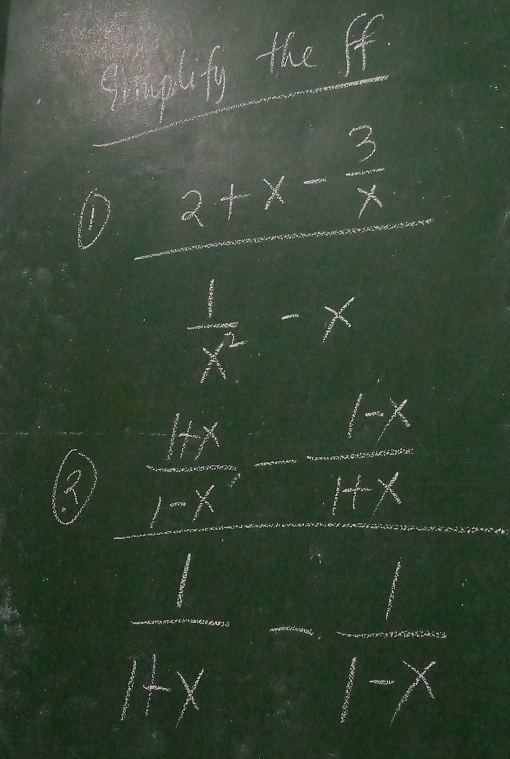 Simplify the ff.
① 2 + x - 3/x
1/x² - x
② 1+x/1-x - 1-x/1+x
1/1+x - 1/1-x